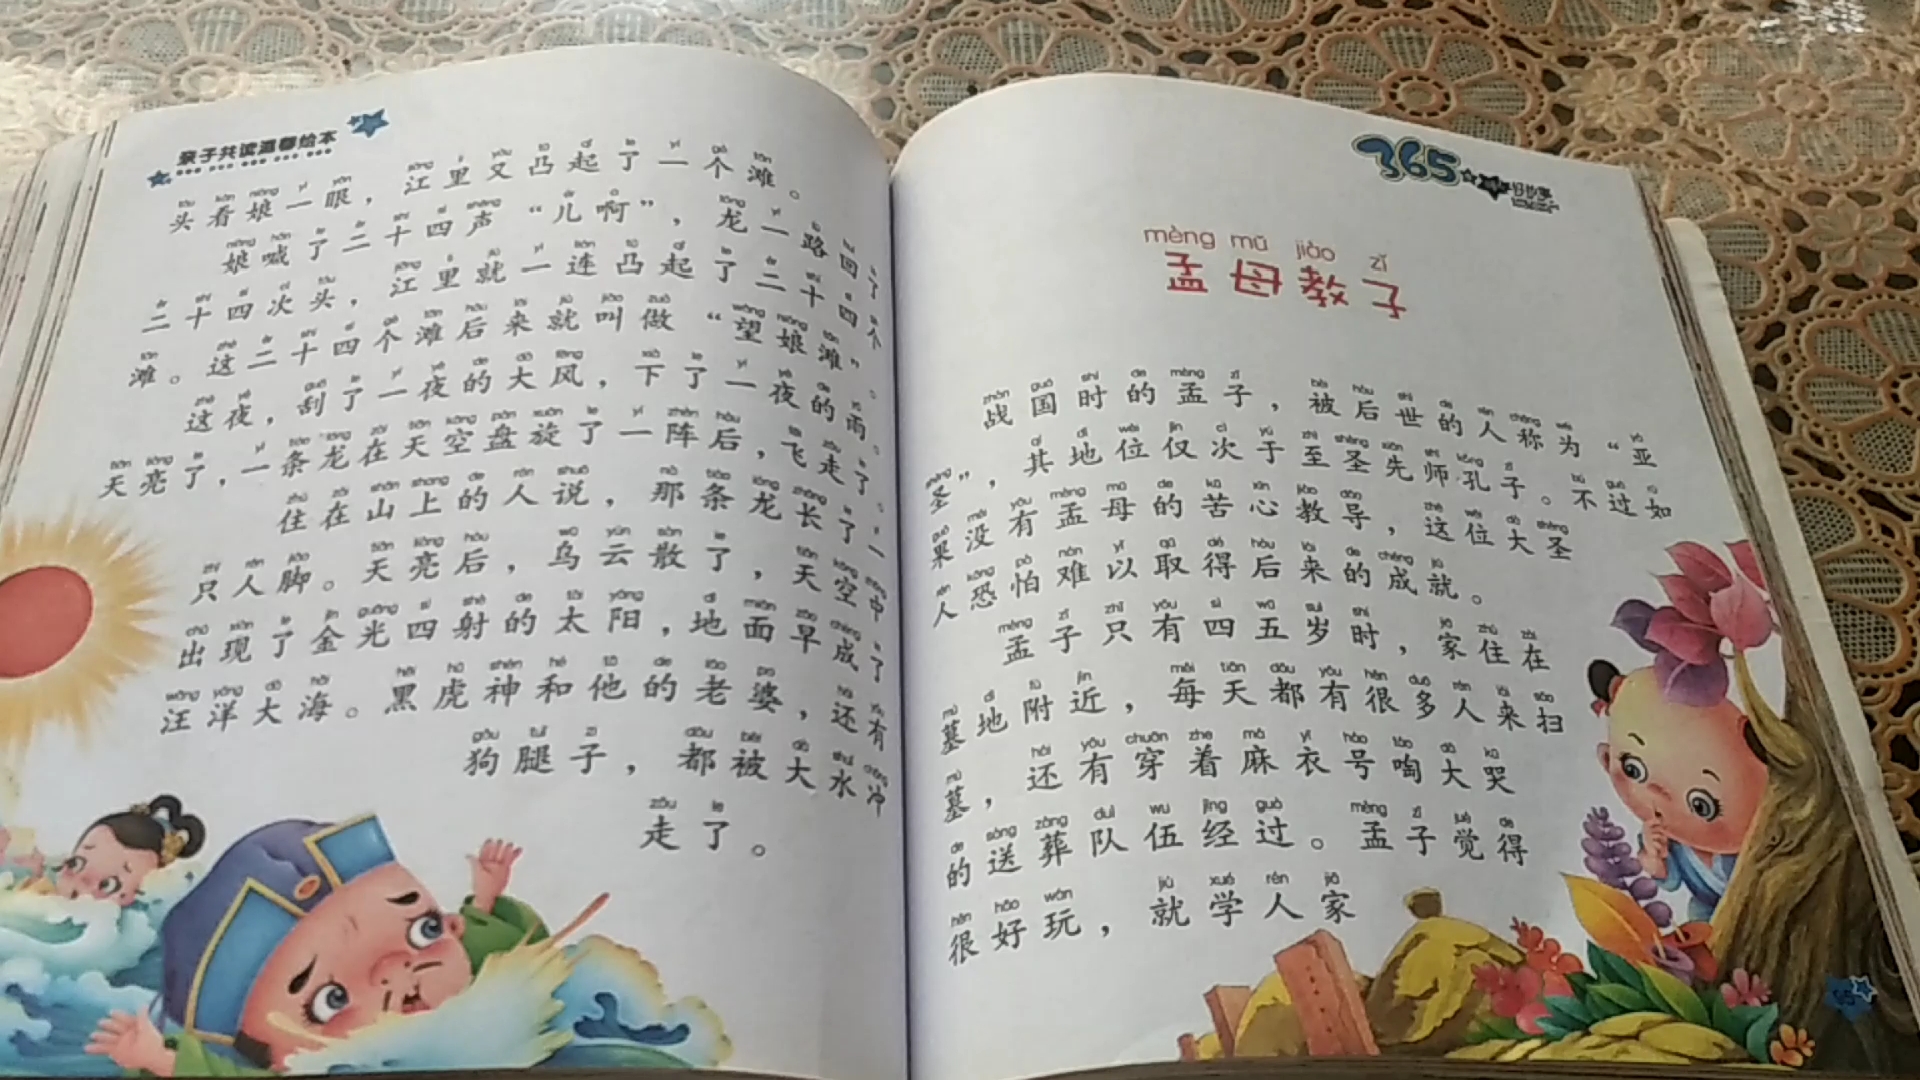 亲子共读温馨绘本
头看娘一眼，江里又凸起了一个滩。
娘喊了二十四声“儿啊”，龙一路回了
二十四次头，江里就一连凸起了二十四个
滩。这二十四个滩后来就叫做“望娘滩”。
这夜，刮了一夜的大风，下了一夜的雨。
天亮了，一条龙在天空盘旋了一阵后，飞走了。
住在山上的人说，那条龙长了一
只人脚。天亮后，乌云散了，天空中
出现了金光四射的太阳，地面早成了
汪洋大海。黑虎神和他的老婆，还有
狗腿子，都被大水冲
走了。
365
mèng mǔ jiào zǐ
孟母教子
战国时的孟子，被后世的人称为“亚
圣”，其地位仅次于至圣先师孔子。不过如
果没有孟母的苦心教导，这位大圣
人恐怕难以取得后来的成就。
孟子只有四五岁时，家住在
墓地附近，每天都有很多人来扫
墓，还有穿着麻衣号啕大哭
的送葬队伍经过。孟子觉得
很好玩，就学人家